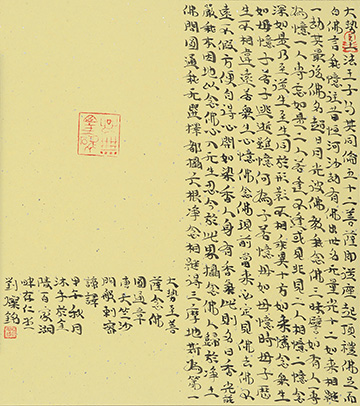 大勢至法王子与其同倫五十二菩薩即從座起頂禮佛足而
白佛言我憶往昔恒河沙劫有佛出世名无量光十二如來相繼
一劫其最後佛名超日月光彼佛教我念佛三昧譬如有人一專
為憶一人專忘如是二人若逢不逢或見非見二人相憶二憶念
深如是乃至從生至生同於形影不相乖異十方如來憐念眾生
如母憶子若子逃逝雖憶何為子若憶母如母憶時母子歷
生不相違遠若眾生心憶佛念佛現前當來必定見佛去佛不
遠不假方便自得心開如染香人身有香氣此則名曰香光莊
嚴我本因地以念佛心入无生忍今於此界攝念佛人歸於淨土
佛問圓通我无選擇都攝六根淨念相繼得三摩地斯為第一
大勢至菩
薩念佛
圓通章
唐天竺沙
門般剌密
諦譯
秋月
沐手於金
陵百家湖
畔存仁堂
劉燦銘